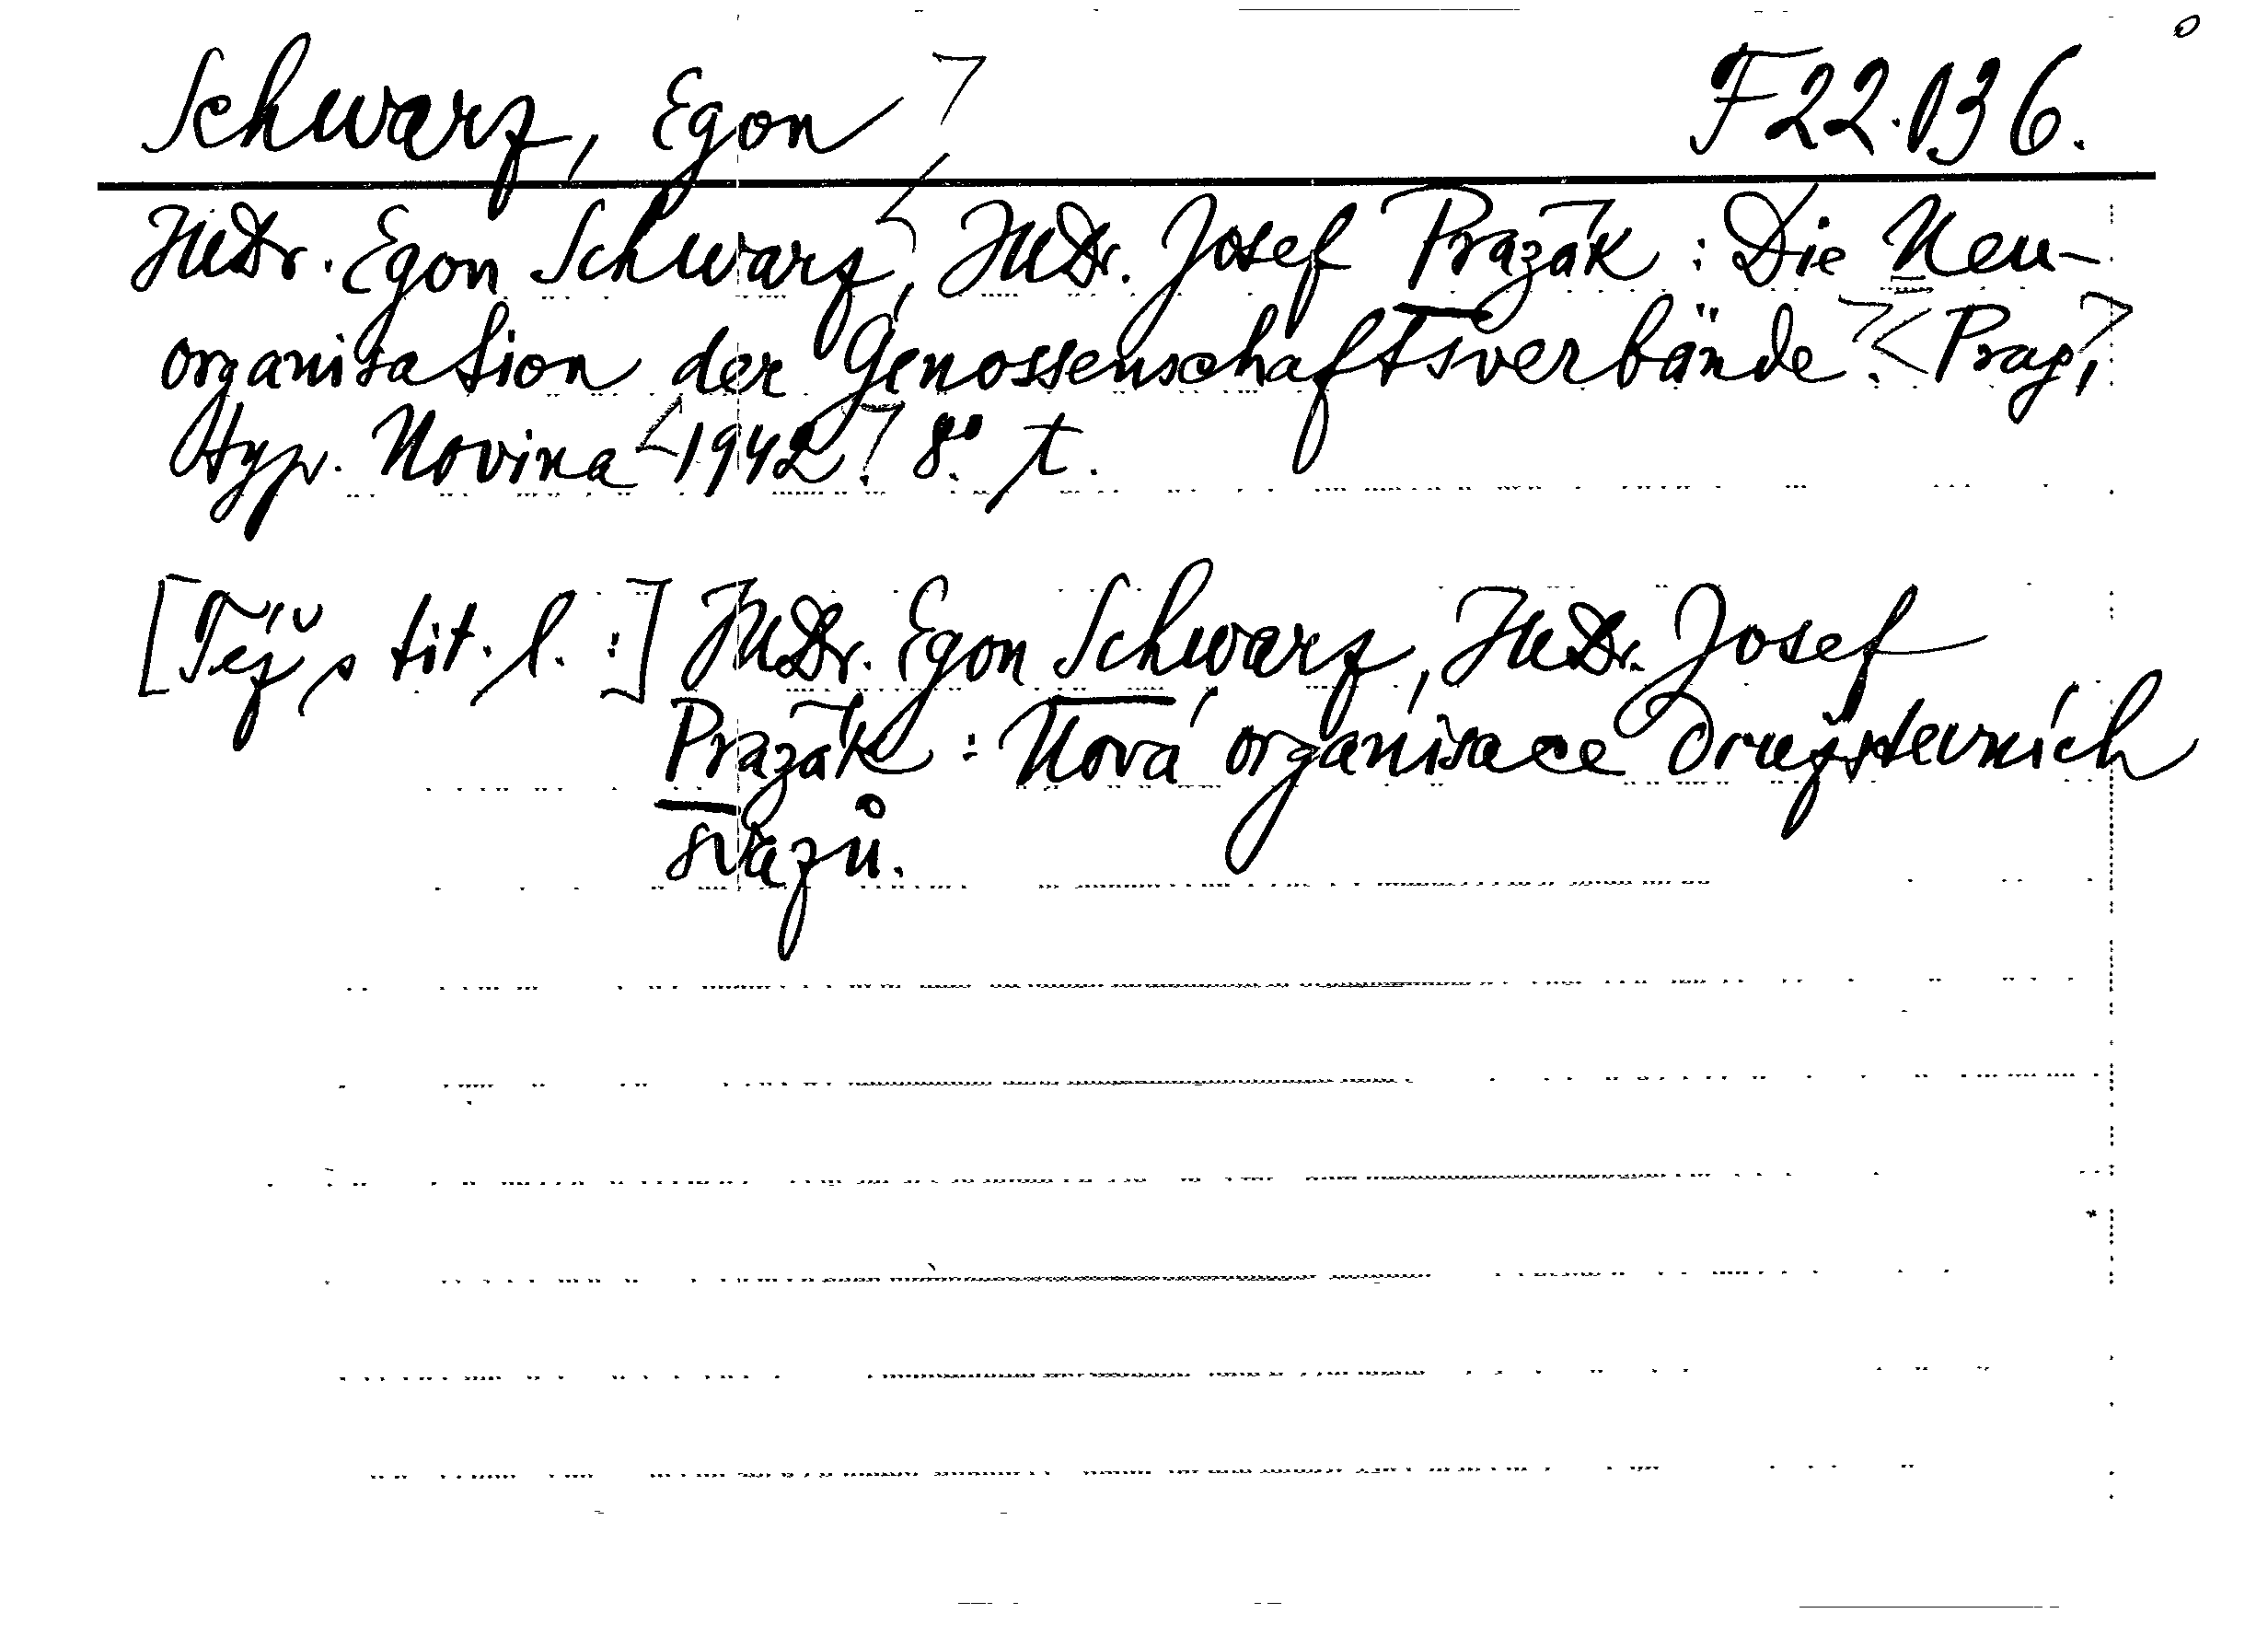 Schwarz, Egon F 22.136.
JUDr. Egon Schwarz, JUDr. Josef Prazák : Die Neu-
organisation der Genossenschaftsverbände. Prag,
typ. Novina 1942. 8° t.
[Též s tit. l. :] JUDr. Egon Schwarz, JUDr. Josef
Prazák : Nová organisace družstevních
svazů.